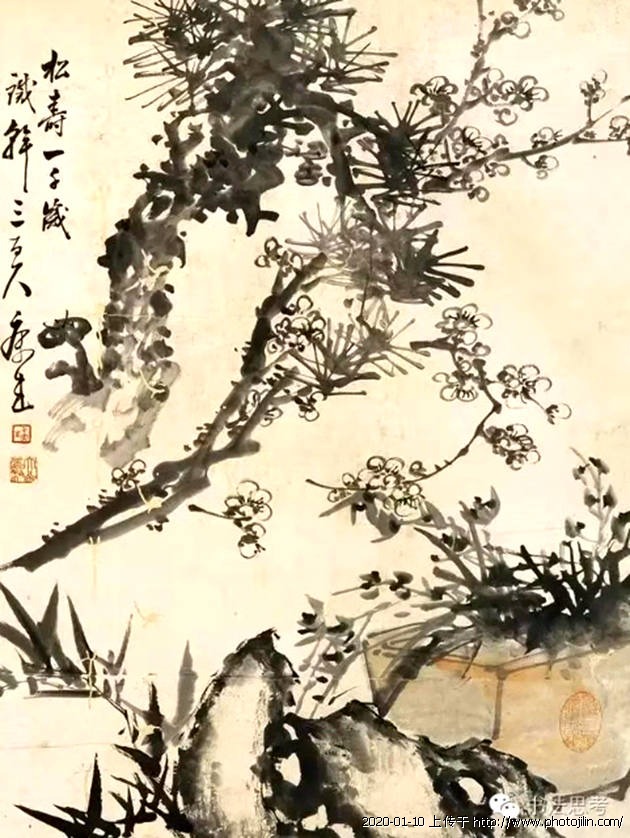 松壽一千歲
識三百人 康生
书法思考
2020-01-10 上传于 http://www.photojilin.com/